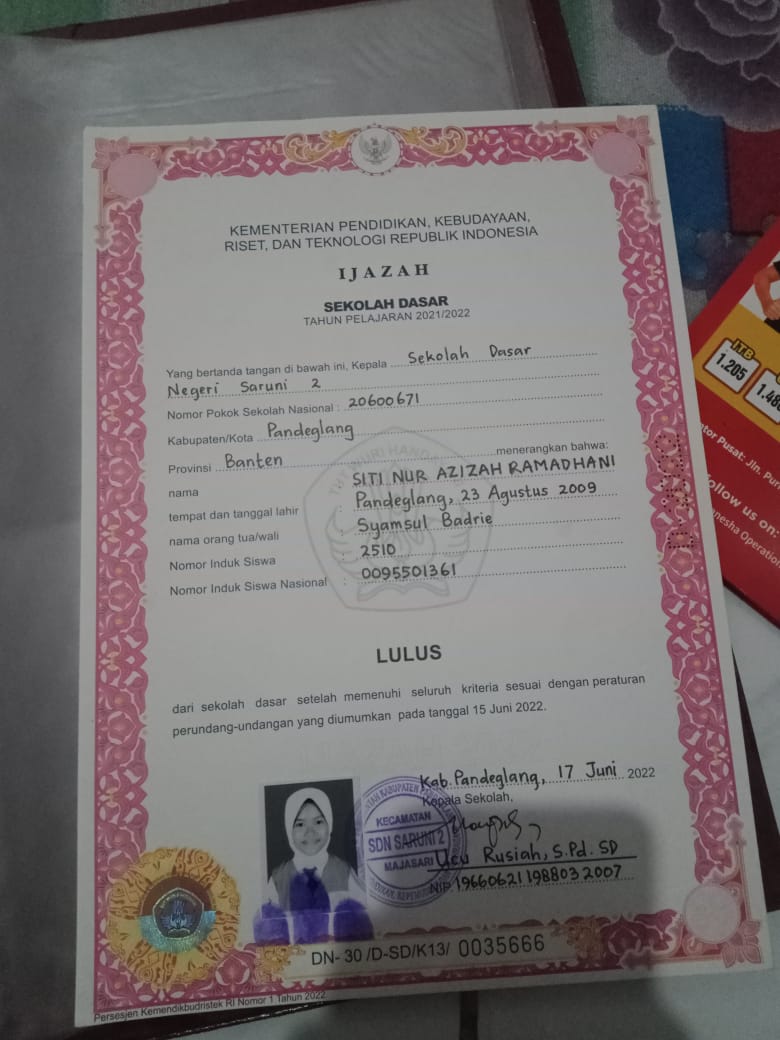 KEMENTERIAN PENDIDIKAN, KEBUDAYAAN,
RISET, DAN TEKNOLOGI REPUBLIK INDONESIA
IJAZAH
SEKOLAH DASAR
TAHUN PELAJARAN 2021/2022
Yang bertanda tangan di bawah ini, Kepala Sekolah Dasar
Negeri Saruni 2
Nomor Pokok Sekolah Nasional : 20600671
Kabupaten/Kota Pandeglang
Provinsi Banten menerangkan bahwa:
nama : SITI NUR AZIZAH RAMADHANI
tempat dan tanggal lahir : Pandeglang, 23 Agustus 2009
nama orang tua/wali : Syamsul Badrie
Nomor Induk Siswa : 2510
Nomor Induk Siswa Nasional : 0095501361
TUT WURI HANDAYANI
LULUS
dari sekolah dasar setelah memenuhi seluruh kriteria sesuai dengan peraturan
perundang-undangan yang diumumkan pada tanggal 15 Juni 2022.
Kab. Pandeglang, 17 Juni 2022
Kepala Sekolah,
KECAMATAN
SDN SARUNI 2
MAJASARI
Ucu Rusiah, S.Pd. SD
NIP 19660621 198803 2007
DN- 30 /D-SD/K13/ 0035666
Persesjen Kemendikbudristek RI Nomor 1 Tahun 2022
ITB
1.205
Pusat: Jln.
ollow us on:
nesha Operation